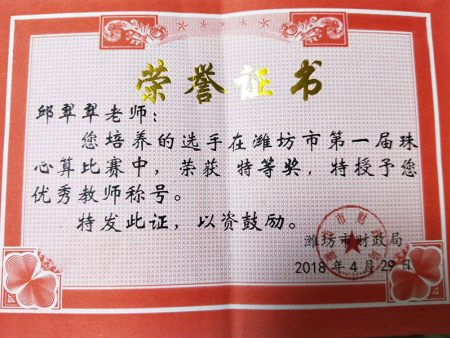 荣誉证书
邱翠翠老师:
您培养的选手在潍坊市第一届珠
心算比赛中,荣获 特等奖,特授予您
优秀教师称号。
特发此证,以资鼓励。
潍坊市财政局
2018年4月29日